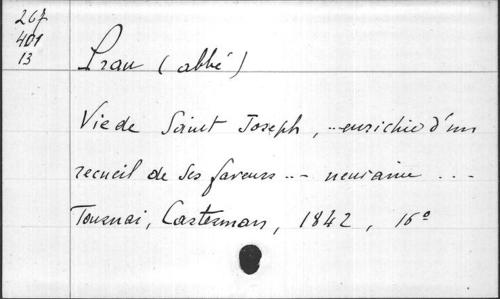 267
401
13
Prau (abbé)
Vie de Saint Joseph, ... enrichie d'un
recueil de ses faveurs ... neuvaine ...
Tournai, Casterman, 1842, 16°